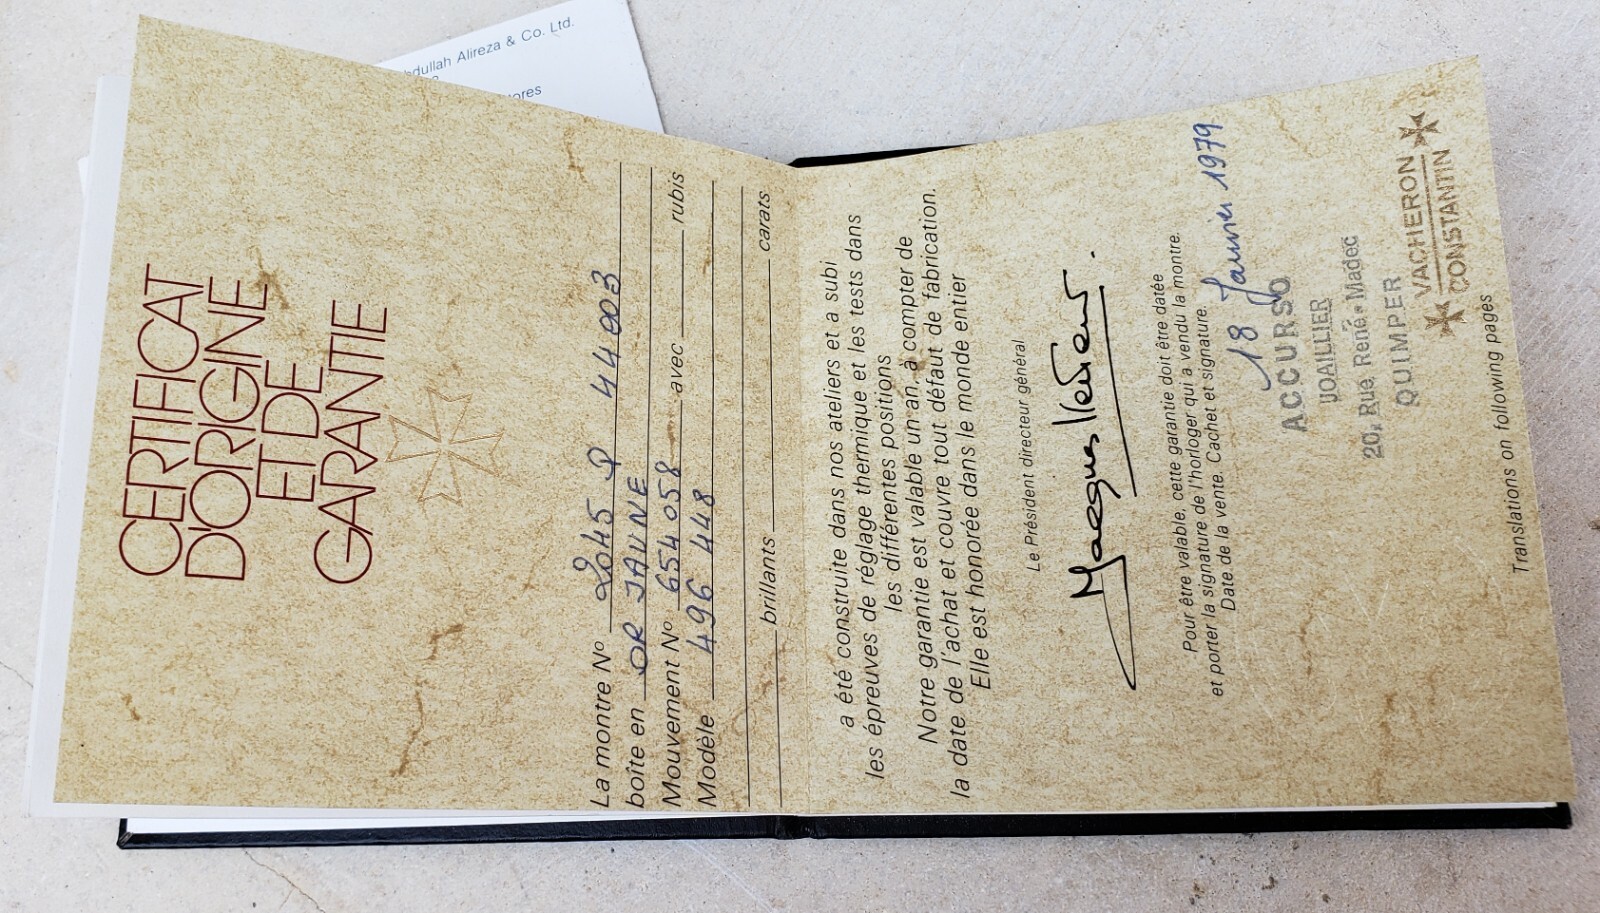 CERTIFICAT
D'ORIGINE
ET DE
GARANTIE
La montre N° 2045 P 44003
boîte en OR JAUNE
Mouvement N° 654 058 avec rubis
Modèle 496 448
brillants carats
a été construite dans nos ateliers et a subi
les épreuves de réglage thermique et les tests dans
les différentes positions
Notre garantie est valable un an, à compter de
la date de l'achat et couvre tout défaut de fabrication.
Elle est honorée dans le monde entier
Le Président directeur général
Pour être valable, cette garantie doit être datée
et porter la signature de l'horloger qui a vendu la montre.
Date de la vente. Cachet et signature.
18 Janvier 1979
ACCURSO
JOAILLIER
20, Rue, René-Madec
QUIMPER
VACHERON
CONSTANTIN
Translations on following pages
Alireza & Co. Ltd.